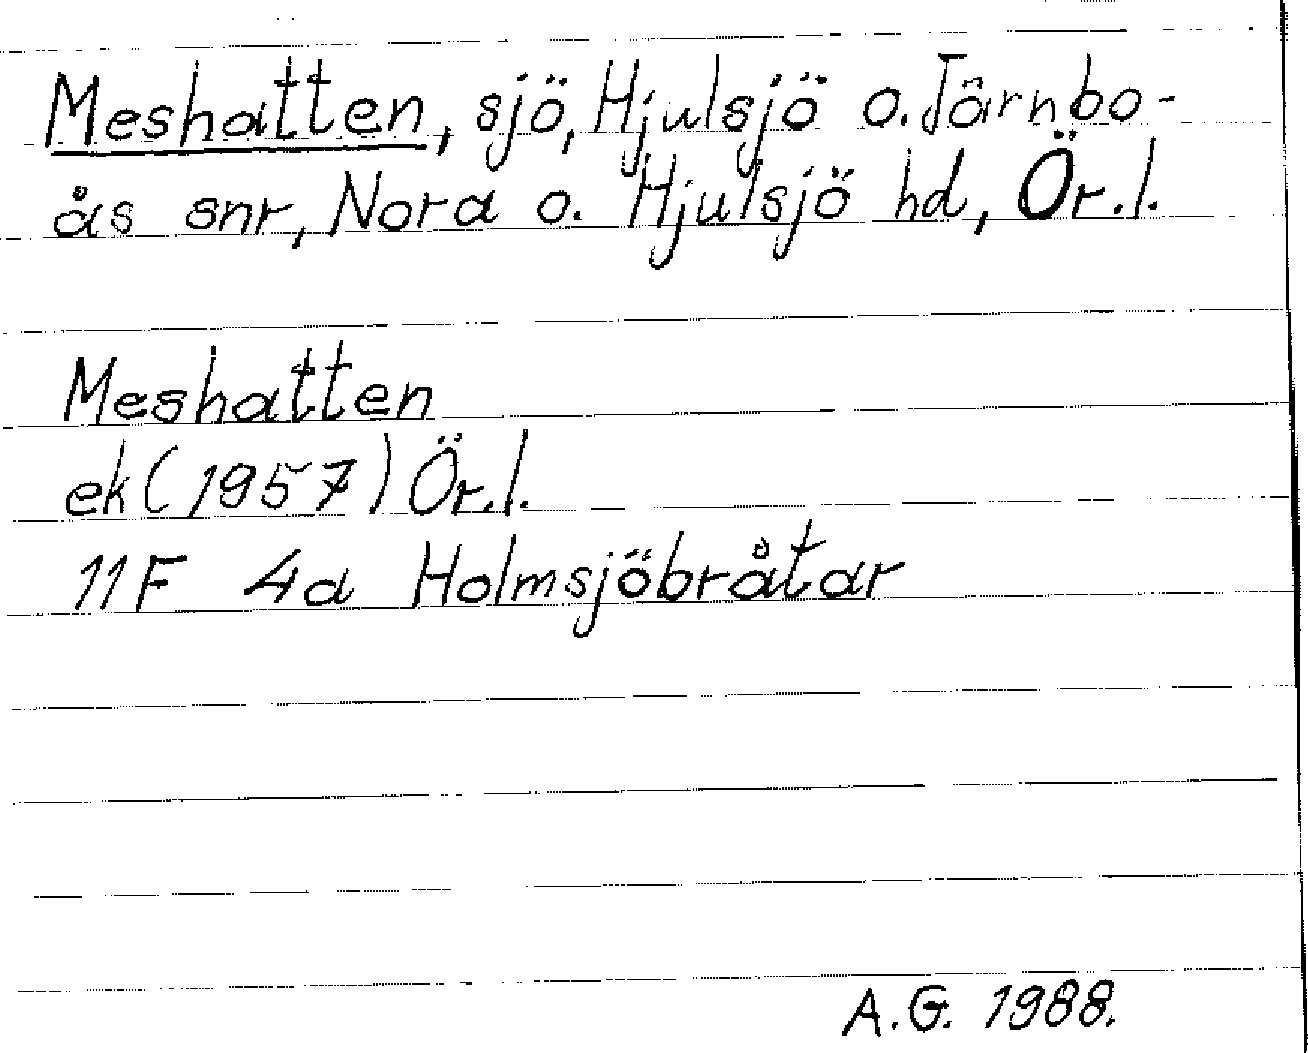 Meshatten, sjö, Hjulsjö o. Järnbo-
ås snr, Nora o. Hjulsjö hd, Ör.l.
Meshatten
ek (1957) Ör.l.
11F 4a Holmsjöbråtar
A.G. 1988.